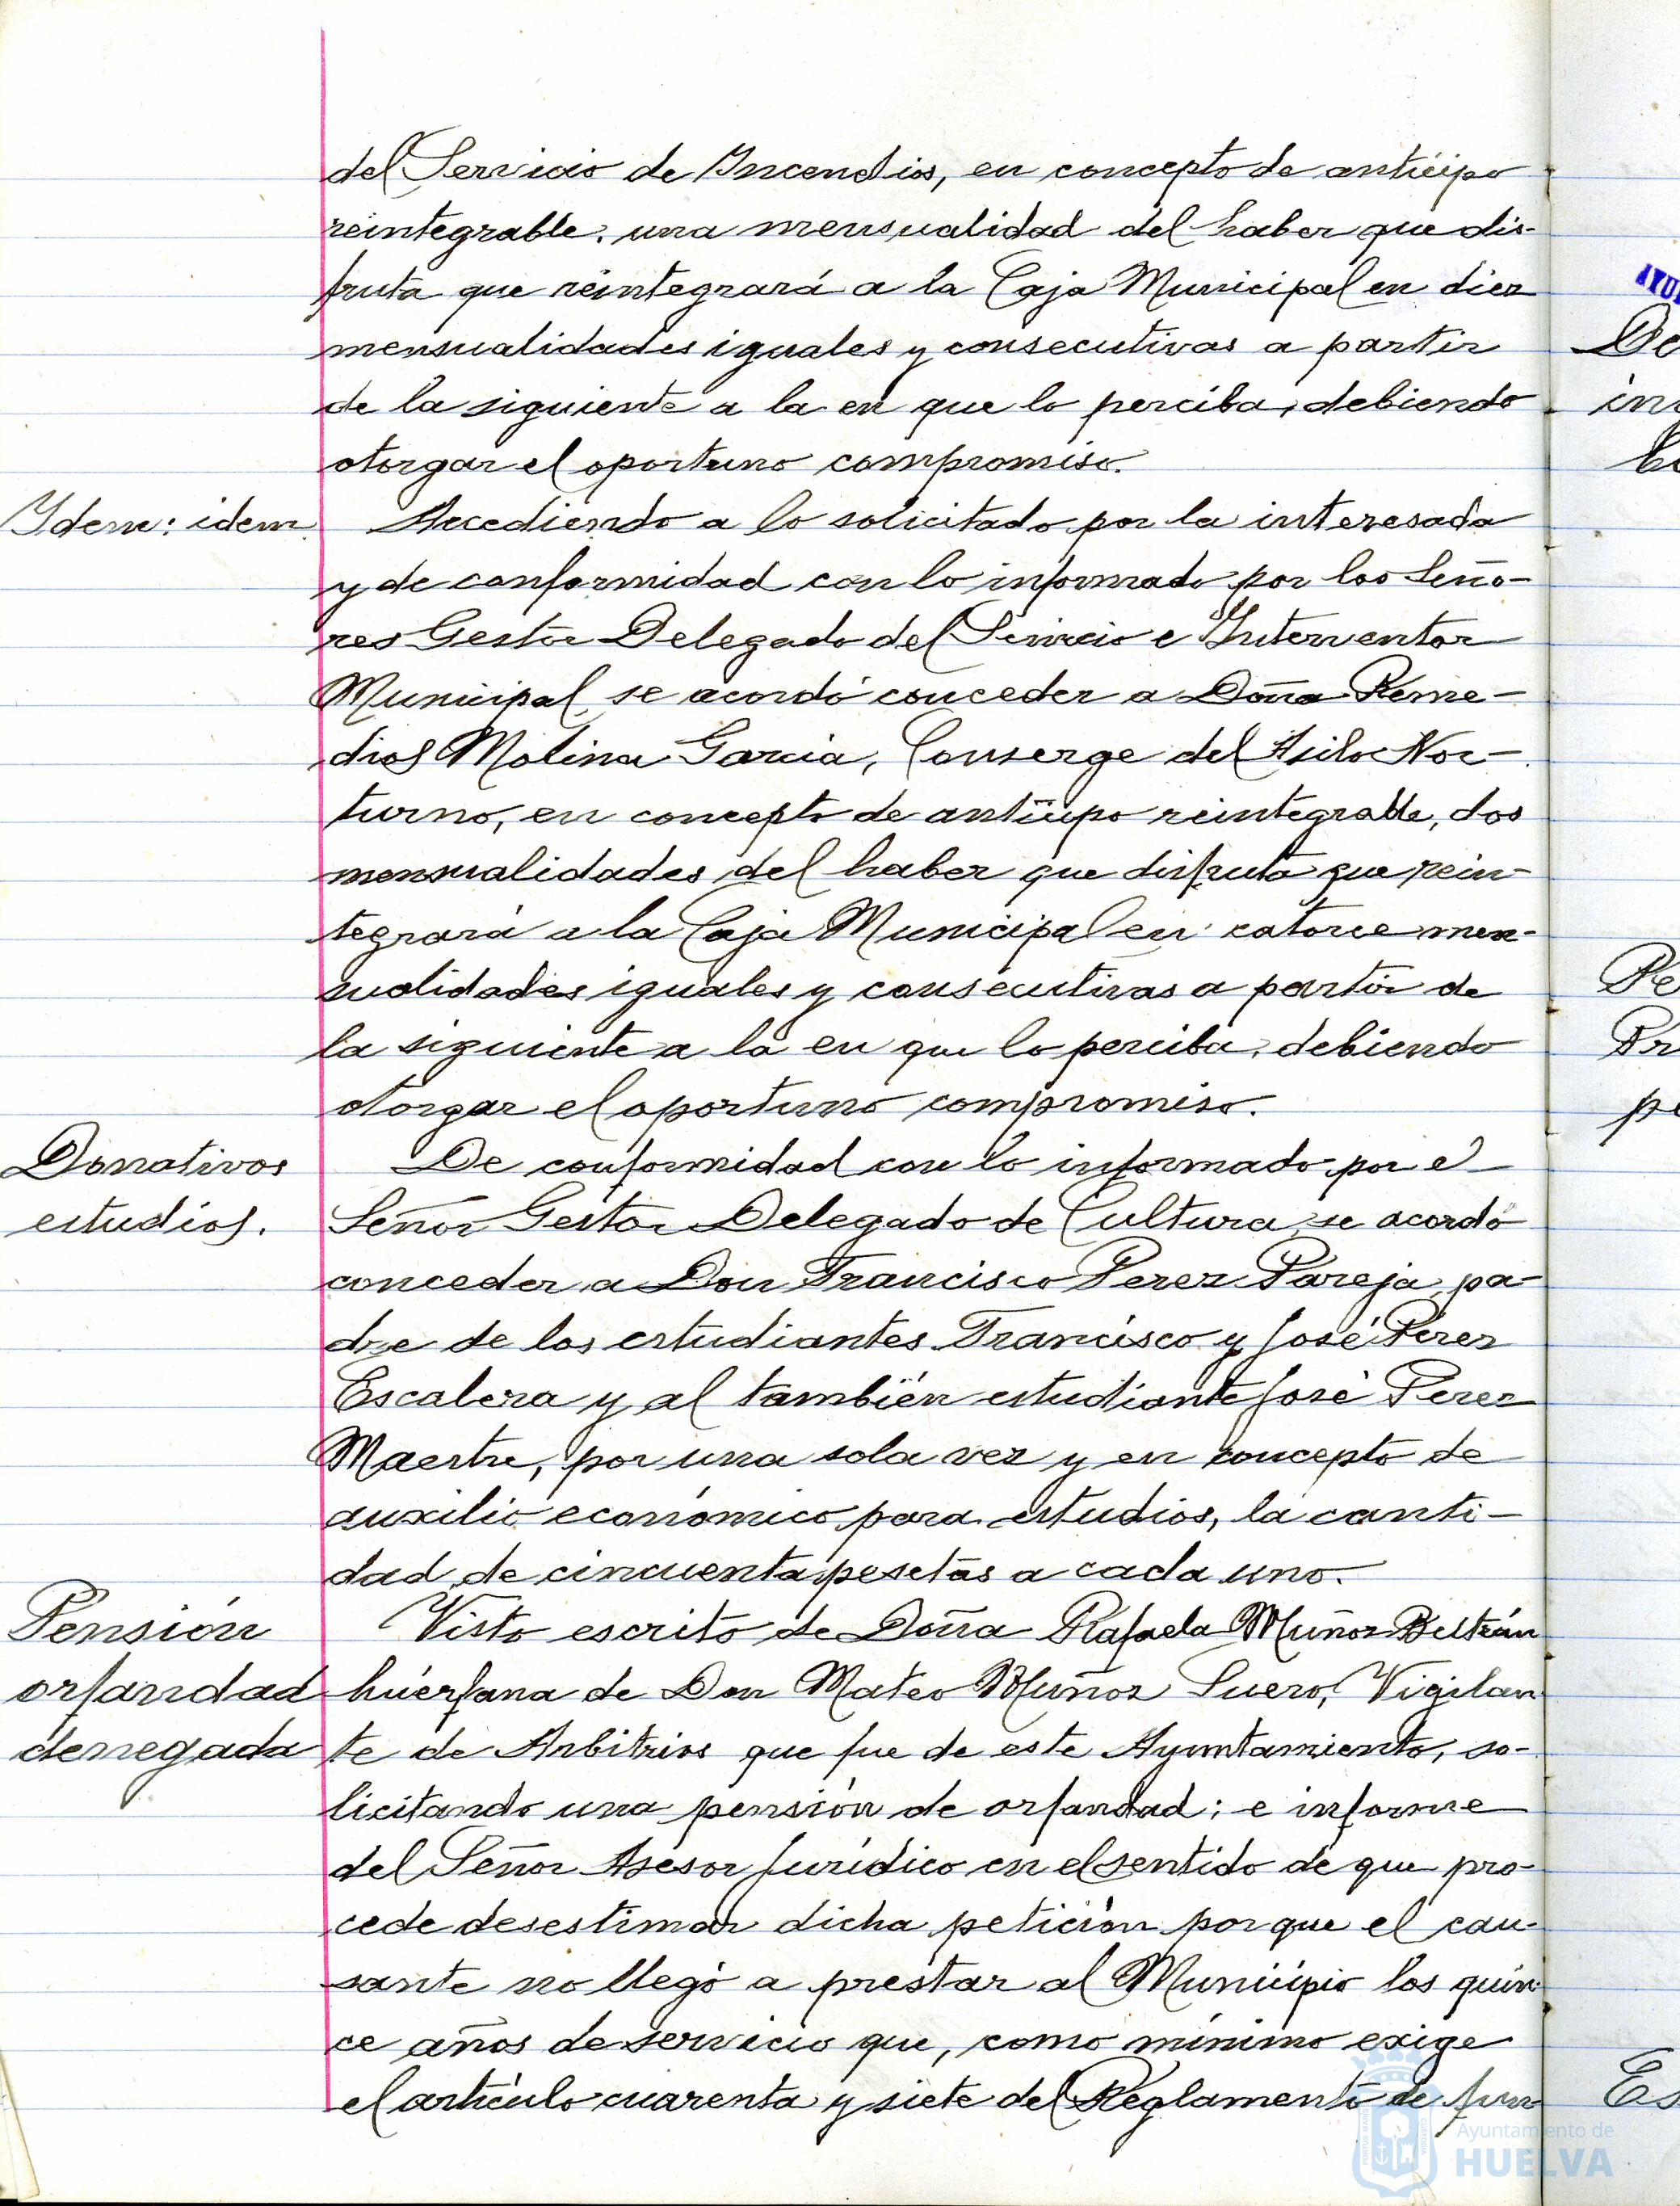 del Servicio de Incendios, en concepto de anticipo
reintegrable, una mensualidad del haber que dis-
fruta que reintegrará a la Caja Municipal en diez
mensualidades iguales y consecutivas a partir
de la siguiente a la en que lo perciba, debiendo
otorgar el oportuno compromiso.
Idem: idem.
Accediendo a lo solicitado por la interesada
y de conformidad con lo informado por los Seño-
res Gestor Delegado del Servicio e Interventor
Municipal, se acordó conceder a Doña Reme-
dios Molina Garcia, Conserge del Asilo Noc-
turno, en concepto de anticipo reintegrable, dos
mensualidades del haber que disfruta que rein-
tegrará a la Caja Municipal en catorce men-
sualidades iguales y consecutivas a partir de
la siguiente a la en que lo perciba, debiendo
otorgar el oportuno compromiso.
Donativos
estudios.
De conformidad con lo informado por el
Señor Gestor Delegado de Cultura, se acordó
conceder a Don Francisco Perez Pareja, pa-
dre de los estudiantes Francisco y José Perez
Escalera y al también estudiante José Perez
Maestre, por una sola vez y en concepto de
auxilio económico para estudios, la canti-
dad de cincuenta pesetas a cada uno.
Pensión
orfandad
denegada
Visto escrito de Doña Rafaela Muñoz Beltrán
huérfana de Don Mateo Muñoz Suero, Vigilan
te de Arbitrios que fue de este Ayuntamiento, so-
licitando una pensión de orfandad; e informe
del Señor Asesor Jurídico en el sentido de que pro-
cede desestimar dicha petición porque el cau-
sante no llegó a prestar al Municipio los quin-
ce años de servicio que, como mínimo exige
el artículo cuarenta y siete del Reglamento de fun
Ayuntamiento de
HUELVA